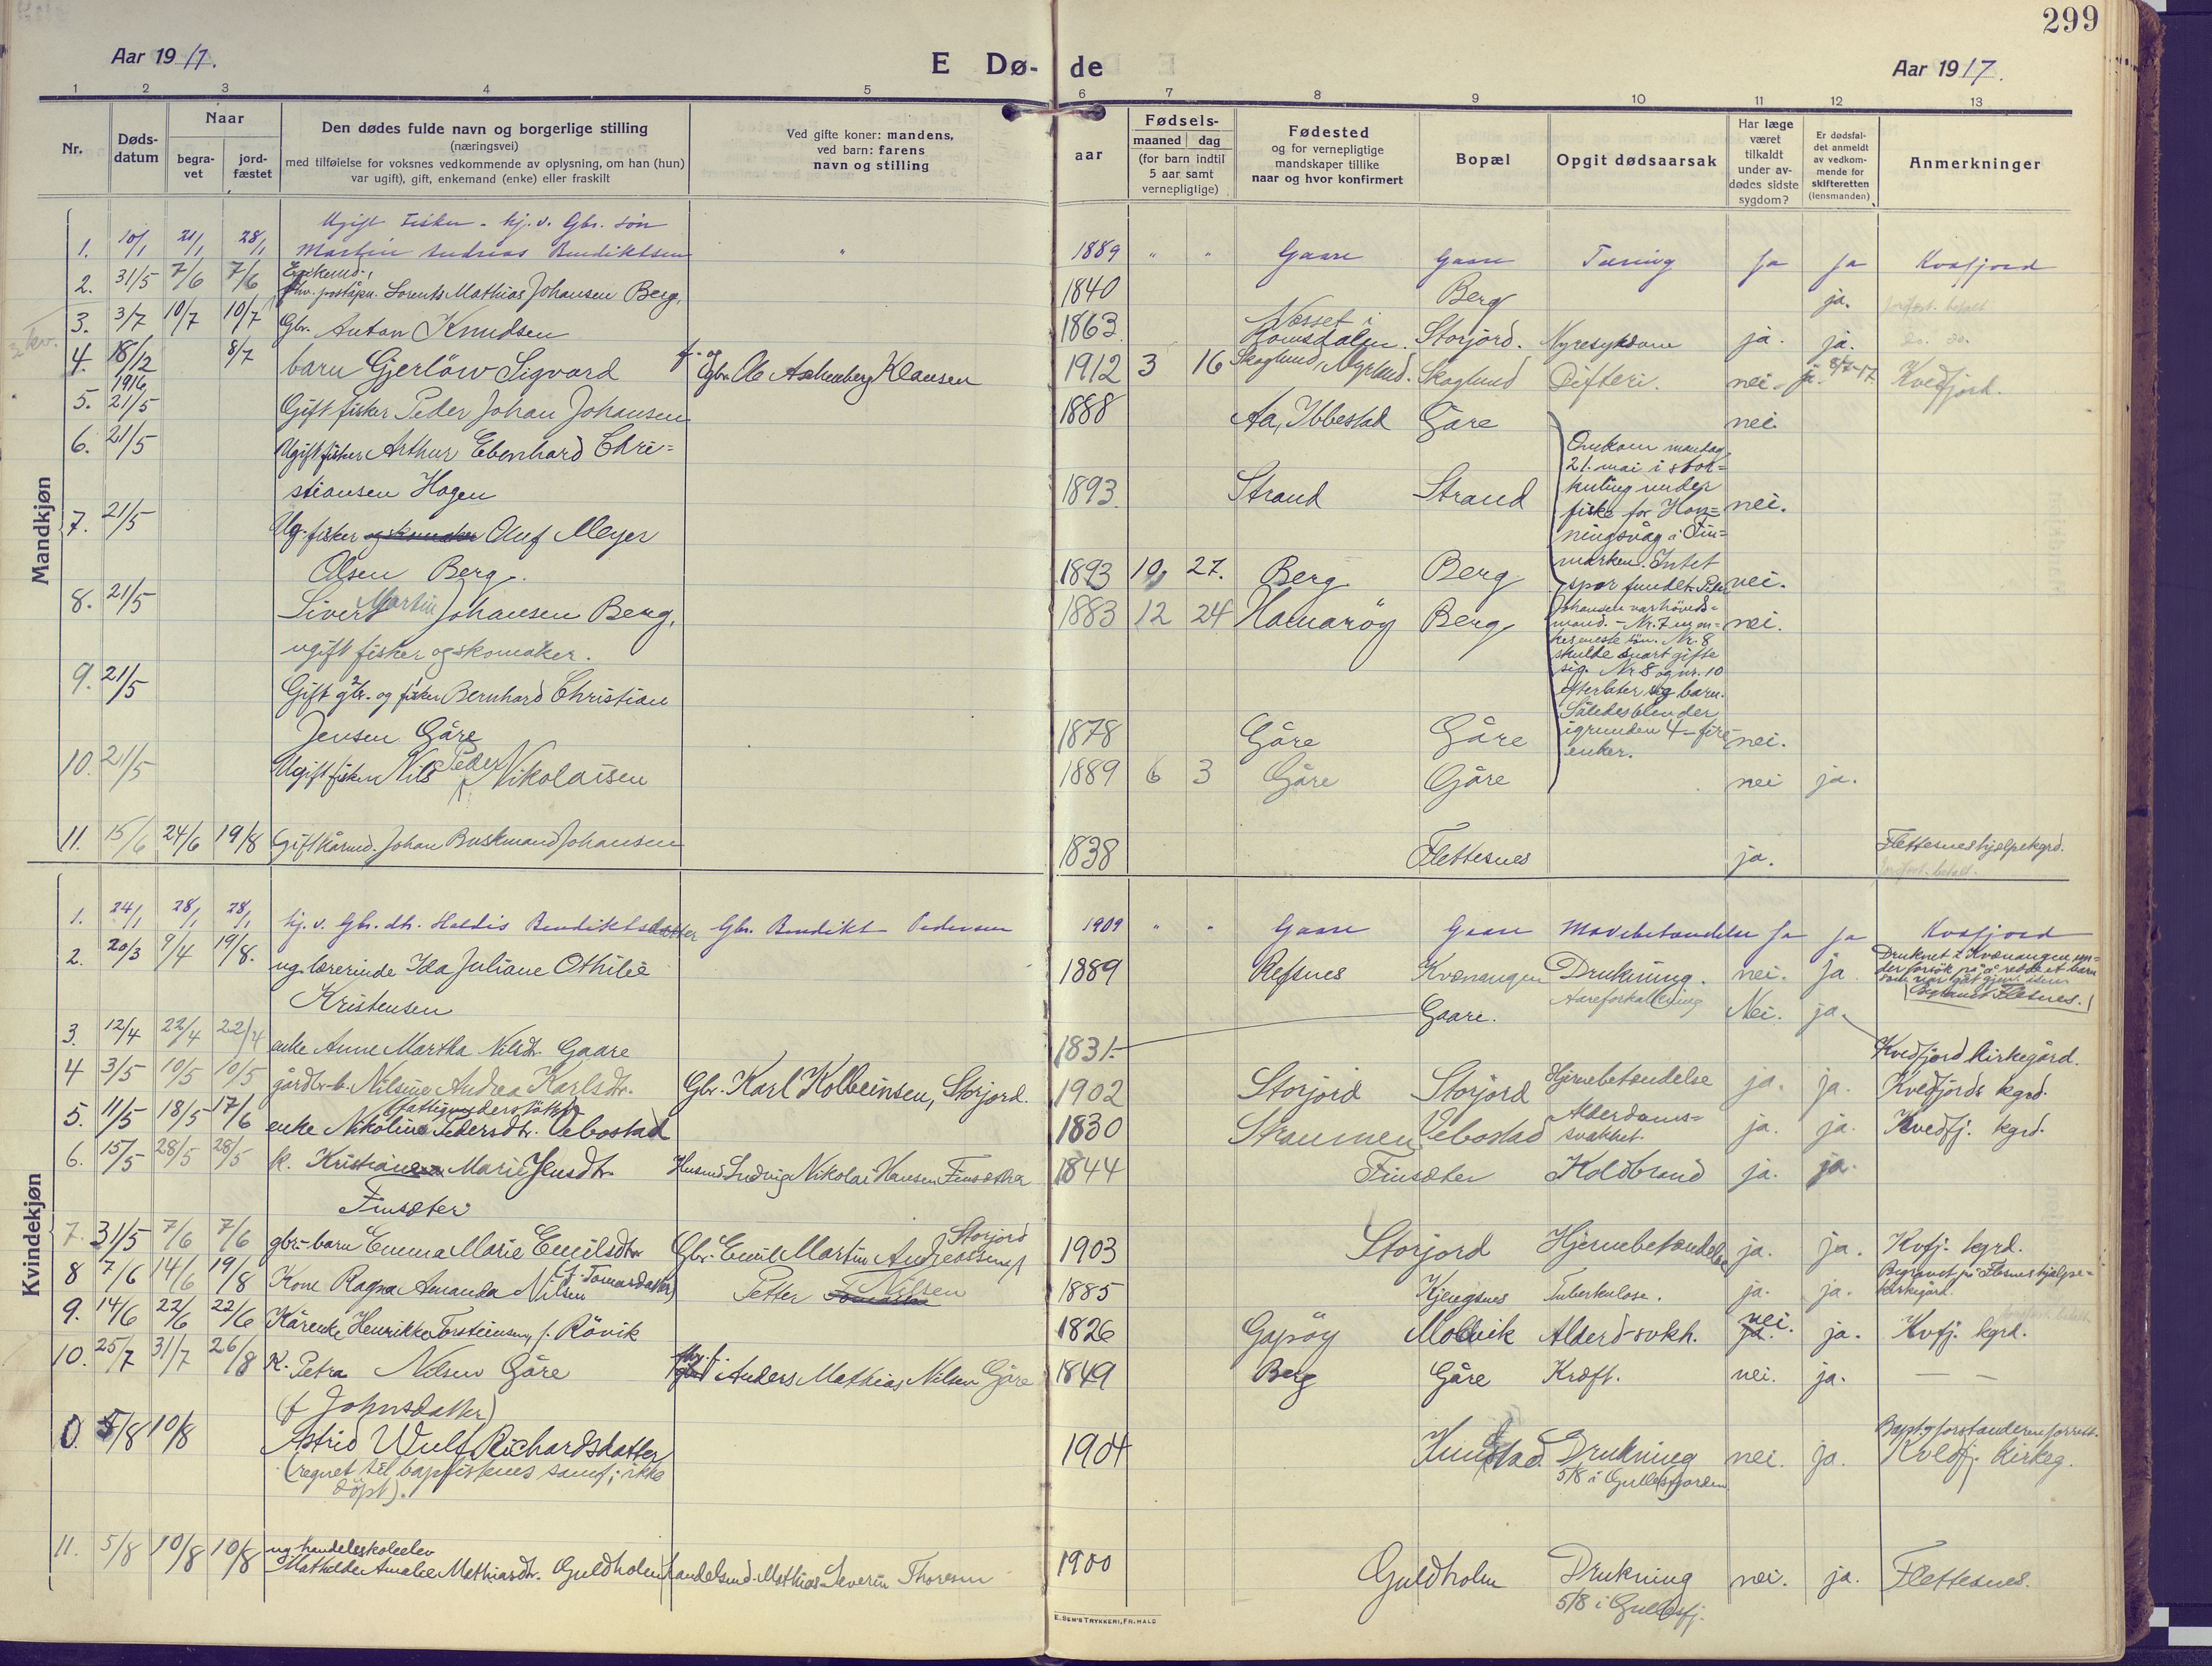 299
Aar 1917.
E Dø- de
Aar 1917.
1 2 3 4 5 6 7 8 9 10 11 12 13
Nr.
Døds-
datum
Naar
begra-
vet
jord-
fæstet
Den dødes fulde navn og borgerlige stilling
(næringsvei)
med tilføielse for voksnes vedkommende av oplysning, om han (hun)
var ugift), gift, enkemand (enke) eller fraskilt
Ved gifte koner: mandens,
ved barn: farens
navn og stilling
aar
Fødsels-
maaned dag
(for barn indtil
5 aar samt
vernepligtige)
Fødested
og for vernepligtige
mandskaper tillike
naar og hvor konfirmert
Bopæl
Opgit dødsaarsak
Har læge
været
tilkaldt
under av-
dødes sidste
sygdom?
Er dødsfal-
det anmeldt
av vedkom-
mende for
skifteretten
(lensmanden)
Anmerkninger
Mandkjøn
Ugift Fisker - hj. v. Gbr. søn
1. 10/1 21/1 28/1 Martin Andreas Bendiktsen " 1889 " " Gaare Gaare Tæring Ja Ja Kvæfjord
Enkemd.,
2. 31/5 7/6 7/6 fhv. poståpn. Lorents Mathias Johansen Berg, 1840 Berg ja.
3. 3/7 10/7 10/7 Gbr. Anton Knudsen 1863 Næsset i
Romsdalen. Storjord. Nyresykdom ja. ja. do. do.
4. 18/12 1916 8/7 barn Gjerlöw Sigvard Gbr. Ole Aschenberg Klausen 1912 3 16 Skoglund, Myrlund. Skoglund Difteri. nei. ja. 8/7-17 Kvedfjord.
5. 21/5 Gift fisker Peder Johan Johansen 1888 Aa, Ibbestad Gåre nei.
6. 21/5 Ugift fisker Arthur Ebenhard Chri=
stiansen Hagen 1893 Strand Strand nei.
7. 21/5 Ug. fisker og skomaker Oluf Meyer
Olsen Berg. 1893 10 27. Berg Berg nei.
8. 21/5 Sivert Martin Johansen Berg, 1883 12 24 Hamarøy Berg nei.
ugift fisker og skomaker.
9. 21/5 Gift gbr. og fisker Bernhard Christian
Jensen Gåre 1878 Gåre Gåre nei.
10. 21/5 Ugift fisker Nils Peder Nikolaisen 1889 6 3 Gåre Gåre nei ja.
Omkom mandag
21. mai i stor=
kuling under
fiske for Hon=
ningsvåg i Fin=
marken. Intet
spor fundet. Peder
Johansen var höveds=
mand. - Nr. 7 var en=
kes eneste sön. Nr. 8
skulde snart gifte
sig. Nr. 8 og nr. 10
efterlater sig barn.
Således blev der
igrunden 4 - fire
enker.
11. 15/6 24/6 19/8 Gift kårmd. Johan Buskmand Johansen 1838 Flettesnes ja. Flettesnes hjelpekgrd.
Kvindekjøn
1. 24/1 28/1 28/1 hj. v. Gbr. dtr. Haldis Bendiktsdatter Gbr. Bendikt Pedersen 1909 " " Gaare Gaare Mavebetændelse Ja Ja Kvæfjord
2. 20/3 9/4 19/8. ug. lærerinde Ida Juliane Othilie
Kristensen 1889 Refsnes Kvænangen Drukning. nei. ja Druknet i Kvænangen un=
der forsök på å redde et barn
som var gåt gjen. isen
Begravet Flesnes.
3. 12/4 22/4 22/4 enke Anne Martha Nilsdtr. Gaare 1831. Gaare. Aareforkalkning Nei. ja. Kvedfjord kirkegård.
4 3/5 10/5 10/5 gårdbr-b. Nilsine Andrea Karlsdtr. Gbr. Karl Kolbeinsen, Storjord. 1902 Storjord Storjord Hjernebetændelse ja. ja. Kvedfjords kgrd.
5. 11/5 18/5 17/6 enke Nikoline Pedersdtr. Vebostad 1830 Straumen Vebostad Alderdoms=
svakhet. ja. ja. Kvedfj. kgrd.
6. 15/5 28/5 28/5 k. Kristiane Marie Jensdtr.
Finsæter Husmd. Ludvig Nikolai Hansen Finsæter 1844 Finsæter Koldbrand ja. ja.
7. 31/5 7/6 7/6 gbr.-barn Emma Marie Emilsdtr. Gbr. Emil Martin Andreassen, Storjord 1903 Storjord Hjernebetændelse ja. ja. Kvfj. kgrd.
8 7/6 14/6 19/8 Kone Ragna Amanda Nilsen (f. Tomasdatter) Petter Nilsen 1885 Kjengsnes Tuberkulose. ja. ja. Begravet på Flesnes hjelpe=
kirkegård.
9. 14/6 22/6 22/6 Kårenke Henrikke Torsteinsen, f. Rövik 1826 Gapöy Molvik Alderd-svkh. nei. ja. Kvfj. kgrd.
10. 25/7 31/7 26/8 K. Petra Nilsen Gåre
(f Johnsdatter) Anders Mathias Nilsen Gåre 1849 Berg Gåre Kræft. nei. ja. — —
0. 5/8 10/8 Astrid Wulf Richardsdatter
(regnet til baptisternes samf; ikke
döpt). 1904 Drukning
5/8 i Gullesfjorden nei. ja. Kvedfj. kirkeg.
11. 5/8 10/8 10/8 ug. handelsskoleelev
Mathilde Amalie Mathiasdtr. Guldholm handelsmd. Mathias Severin Thoresen 1900 Guldholm Drukning
5/8 i Gullesfj. nei. ja. Flettesnes.
E. SEM'S TRYKKERI, FR.HALD